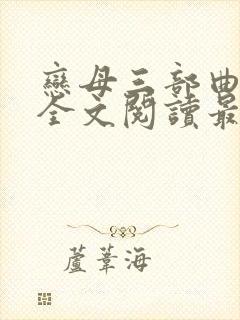 戀母三部曲
全文閱讀最
蘆葦海